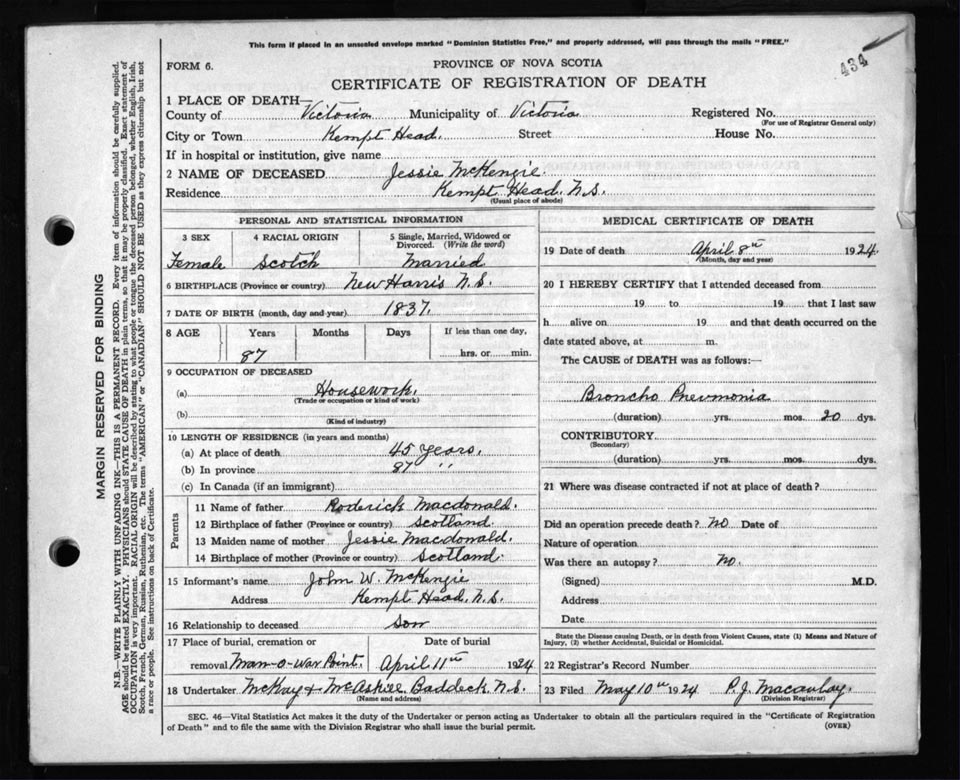 This form if placed in an unsealed envelope marked "Dominion Statistics Free," and properly addressed, will pass through the mails "FREE."
434
FORM 6.
PROVINCE OF NOVA SCOTIA
CERTIFICATE OF REGISTRATION OF DEATH
1 PLACE OF DEATH—
County of Victoria Municipality of Victoria Registered No.
(For use of Registrar General only)
City or Town Kempt Head. Street House No.
If in hospital or institution, give name
2 NAME OF DECEASED Jessie McKenzie.
Residence Kempt Head, N.S.
(Usual place of abode)
PERSONAL AND STATISTICAL INFORMATION
3 SEX 4 RACIAL ORIGIN 5 Single, Married, Widowed or Divorced. (Write the word)
Female Scotch Married
6 BIRTHPLACE (Province or country) New Harris N.S.
7 DATE OF BIRTH (month, day and year) 1837.
8 AGE Years Months Days If less than one day,
87 hrs. or min.
9 OCCUPATION OF DECEASED
(a) Housework.
(Trade or occupation or kind of work)
(b)
(Kind of industry)
10 LENGTH OF RESIDENCE (in years and months)
(a) At place of death 45 years.
(b) In province 87 "
(c) In Canada (if an immigrant)
Parents
11 Name of father Roderick Macdonald.
12 Birthplace of father (Province or country) Scotland.
13 Maiden name of mother Jessie Macdonald.
14 Birthplace of mother (Province or country) Scotland.
15 Informant's name John W. McKenzie
Address Kempt Head, N.S.
16 Relationship to deceased son
17 Place of burial, cremation or Date of burial
removal Man-o-War Point. April 11th 1924
18 Undertaker McKay & McAskill Baddeck N.S.
(Name and address)
MEDICAL CERTIFICATE OF DEATH
19 Date of death April 8th 1924
(Month, day and year)
20 I HEREBY CERTIFY that I attended deceased from
19 to 19 that I last saw
h alive on 19 and that death occurred on the
date stated above, at m.
The CAUSE of DEATH was as follows:—
Broncho Pneumonia
(duration) yrs. mos. 20 dys.
CONTRIBUTORY
(Secondary)
(duration) yrs. mos. dys.
21 Where was disease contracted if not at place of death?
Did an operation precede death? No Date of
Nature of operation
Was there an autopsy? No.
(Signed) M.D.
Address
Date
State the Disease causing Death, or in death from Violent Causes, state (1) Means and Nature of
Injury, (2) whether Accidental, Suicidal or Homicidal.
22 Registrar's Record Number
23 Filed May 10th 1924 P.J. Macaulay.
(Division Registrar)
SEC. 46—Vital Statistics Act makes it the duty of the Undertaker or person acting as Undertaker to obtain all the particulars required in the "Certificate of Registration
of Death" and to file the same with the Division Registrar who shall issue the burial permit.
(OVER)
MARGIN RESERVED FOR BINDING
N.B.—WRITE PLAINLY WITH UNFADING INK—THIS IS A PERMANENT RECORD. Every item of information should be carefully supplied.
AGE should be stated EXACTLY. PHYSICIANS should STATE CAUSE OF DEATH in plain terms, so that it may be properly classified. Exact statement of
OCCUPATION is very important. RACIAL ORIGIN will be described by stating to what people or tongue the deceased person belonged, whether English, Irish,
Scotch, French, German, Russian, Ruthenian, etc. The terms "AMERICAN" or "CANADIAN" SHOULD NOT BE USED as they express citizenship but not
a race or people. See instructions on back of Certificate.